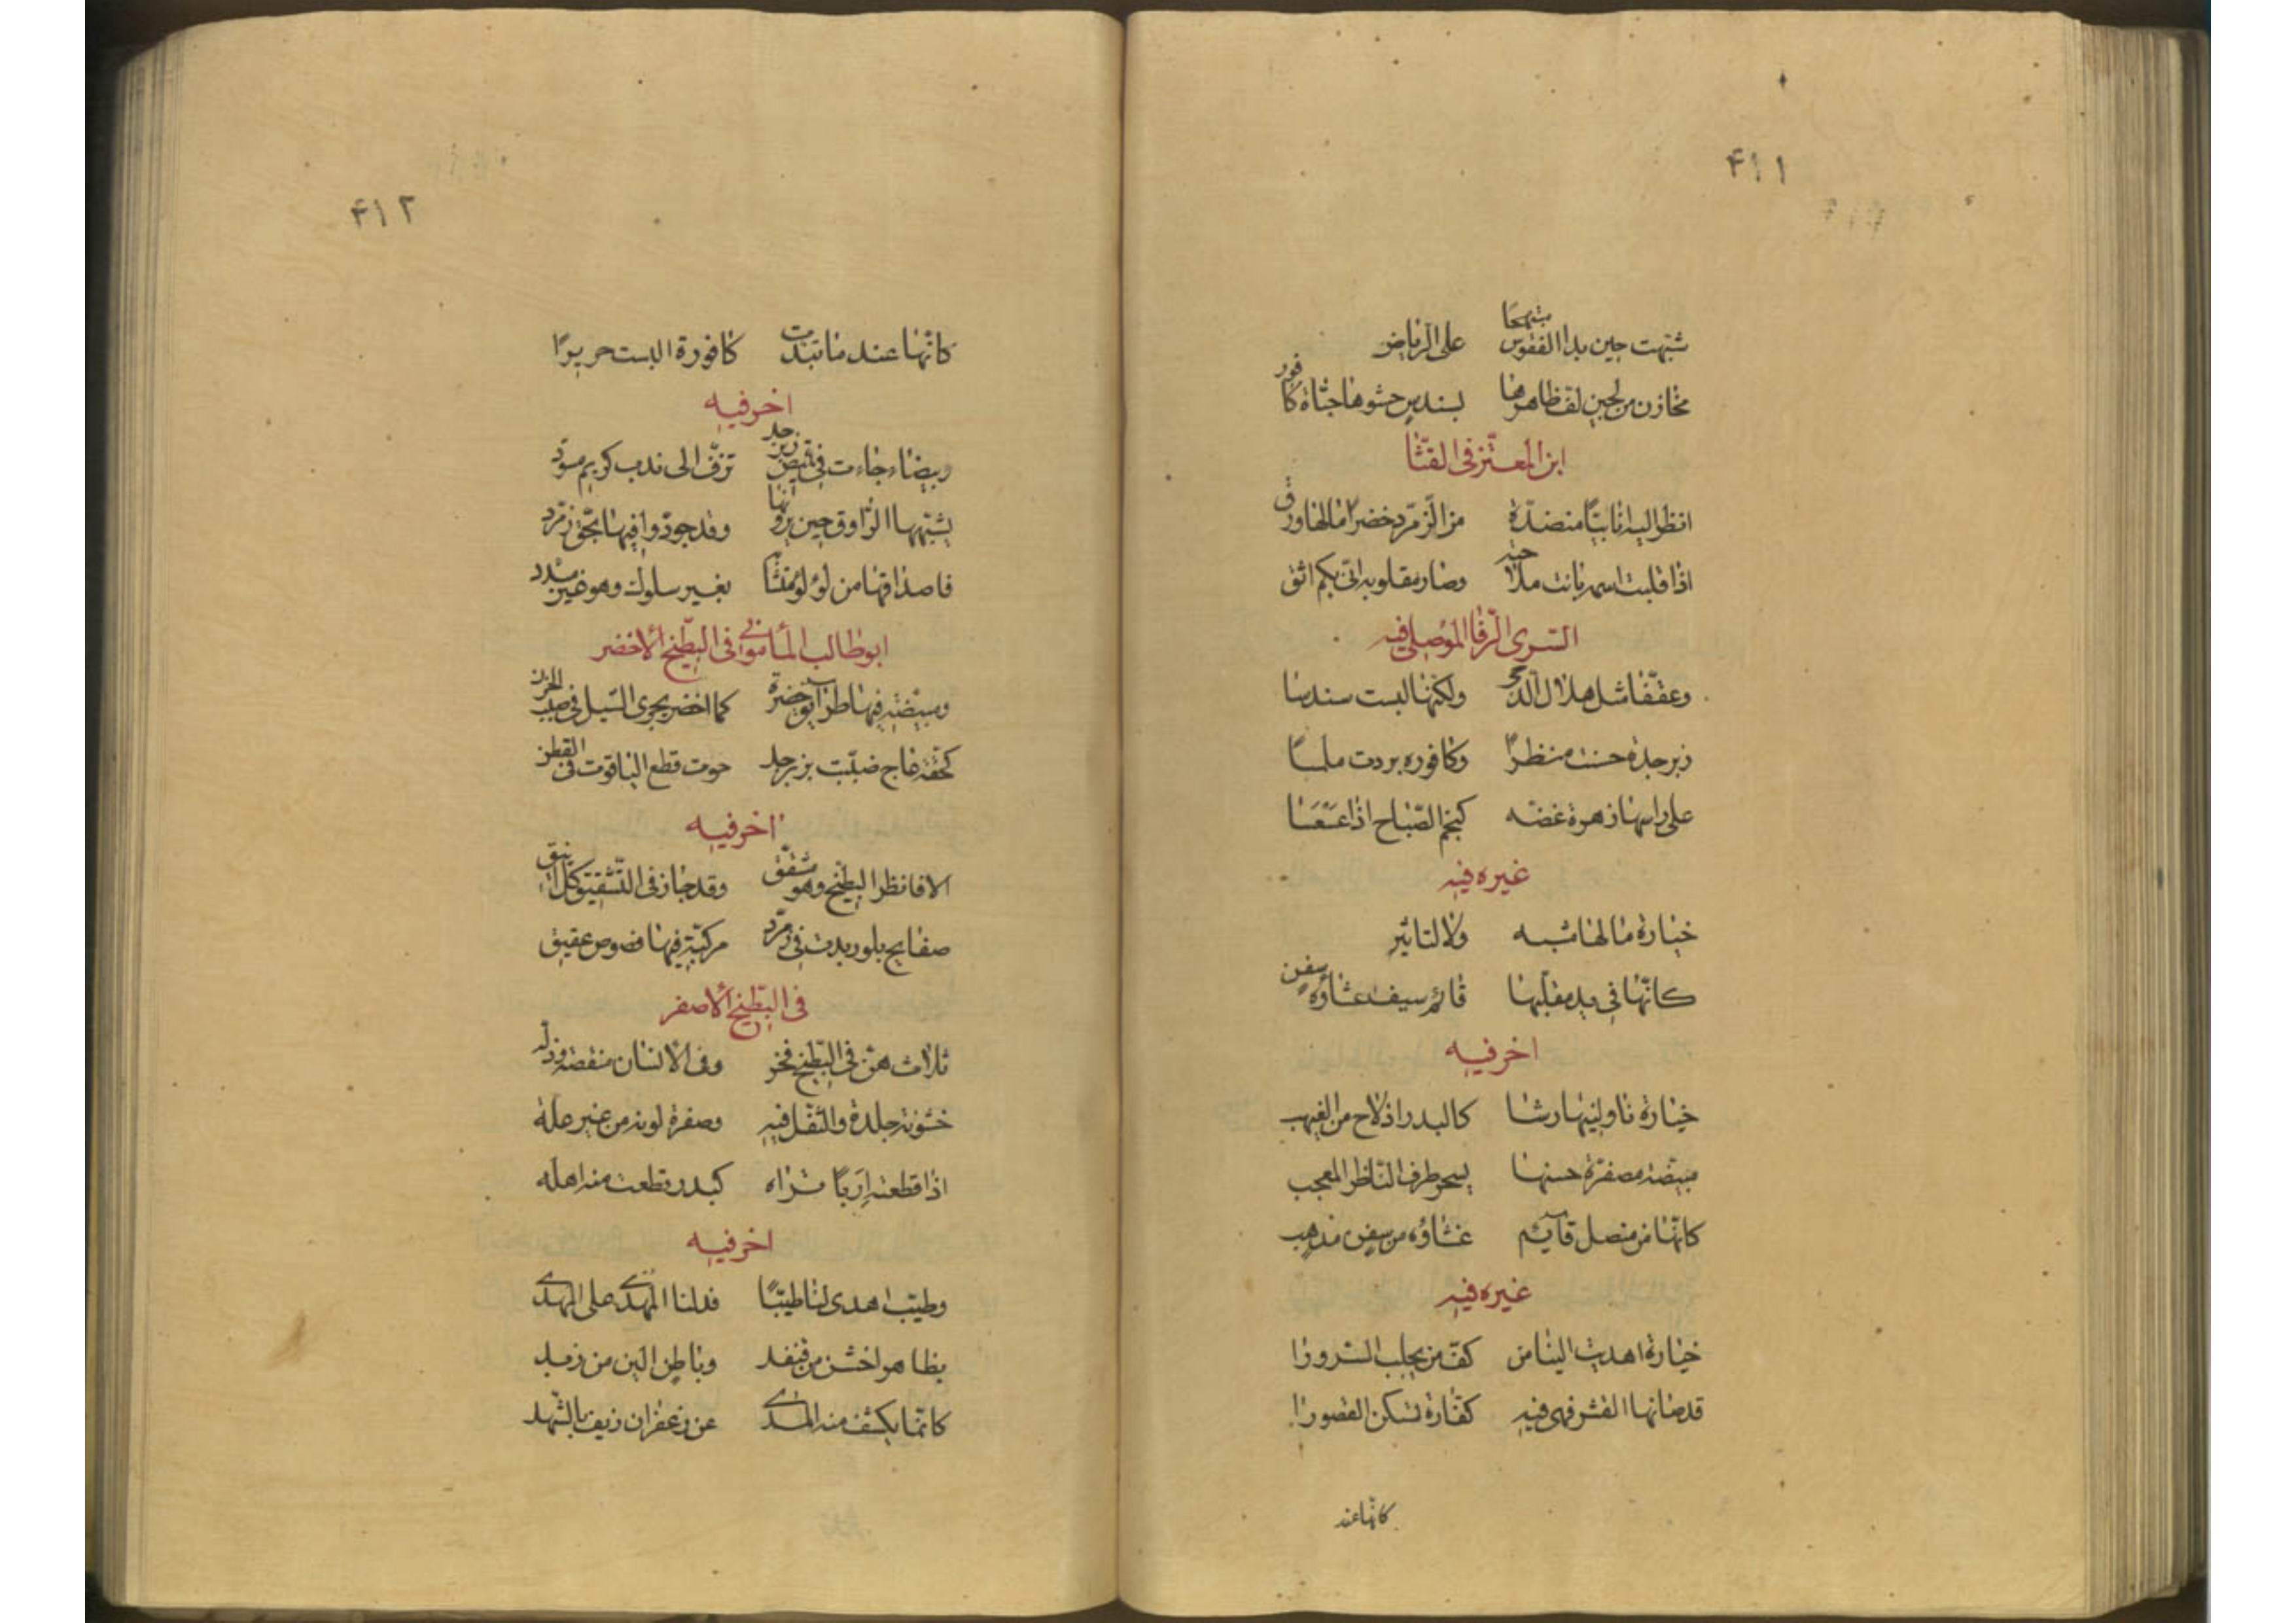 ۴۱۱
شبهت حين بدا الفقوس مبتهجا على الرياض
مخازن من لجين لف ظاهرها بسندس حشوها حبات كافور
ابن المعتز فى القثا
انظر اليه انابيبا منضدة من الزمرد خضرا مالها ورق
اذا قلبت اسمه بانت ملاحته وصار مقلوبه انى بكم اثق
السرى الرفا الموصلى فيه
وعقفا مثل هلال الدجى ولكنها لبست سندسا
زبرجدة حسنت منظرا وكافوره بردت ملمسا
على راسها زهرة غضه كنجم الصباح اذا عسعسا
غيره فيه
خيارة مالها شبيه ولا لتاثير
كانها فى يد مقلبها قائم سيف غشاؤه سفن
اخر فيه
خيارة ناولينها رشا كالبدر اذ لاح من الغيهب
مبيضة مصفرة حسنها يسحر طرف الناظر المعجب
كانها من منصل قايم غشاؤه من سفن مذهب
غيره فيه
خيارة اهديت الينا من كف من يجلب السرورا
قد صانها القشر فهى فيه كفارة تسكن القصورا
كانها عند
۴۱۲
كانها عند ما تبدت كافورة البست حريرا
اخر فيه
وبيضاء جاءت فى قميص زبرجد تزف الى ندب كريم مسود
يشبهها الراوق حين يرونها وقد جودوا فيها بحق زمرد
فاصدافها من لؤلؤ بغير سلوك وهو غير مبدد
ابو طالب المأمونى فى البطيخ الاخضر
ومبيضة فيها طرائق خضرة كما اخضر مجرى السيل فى صبب الحزن
كحقة عاج ضببت بزبرجد حوت قطع الياقوت فى القطن
اخر فيه
الا فانظر البطيخ وهو مشقق وقد جاز فى التشقيق كل انيق
صفايح بلور بدت فى زمرد مركبة فيها فصوص عقيق
فى البطيخ الاصفر
ثلاث هن فى البطيخ فخر وفى الانسان منقصة وذله
خشونة جلدة والثقل فيه وصفرة لونه من غير علة
اذا قطعته اربا تراه كبدر قطعت منه اهله
اخر فيه
وطيب اهدى لنا طيبا فدلنا المهدى على المهدى
بظاهر اخشن من قنفد وباطن الين من زبد
كانما يكشف منه المدى عن زعفران ديف بالشهد